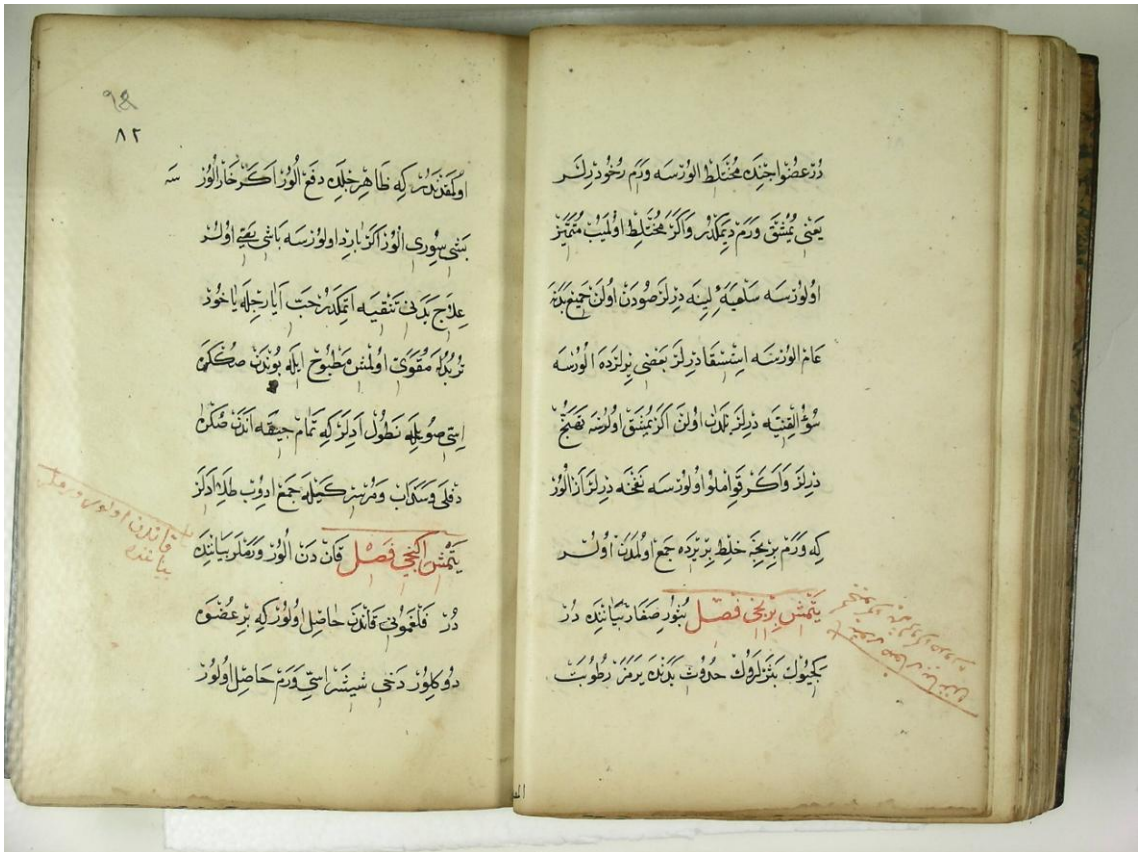 در عضو اجنده مختلط الورسه ورم رخو درلر
يعنى يمشق ورم ديمكدر واكر مختلط اولميب متميز
اولورسه سلعيهٔ لينه درلر صودن اولن جميع بدنه
عام الورسه استسقا درلر بعضى يرلرده الورسه
سوء القنيه درلر بلدن اولن اكر يمشق اولورسه تهبج
درلر واكر قواملو اولورسه نفخه درلر از الور
كه ورم بر نيجه خلط بر يرده جمع اولمدن اولر
يتمش برنجى فصل بثور صغار بياننده در
كجيوك بثرلروك حدوث بدنده يرمز رطوبت
٨٢
اولمقدندر كه ظاهر جلده دفع الور اكر حار الورسه
بشى سورى الور اكر بارد اولورسه باشى يصى اولر
علاج بدنى تنقيه اتمكدر حب ايارجله ياخود
تربدله مقوى اولمش مطبوح ايله بوندن صكره
اسى صويله نطول ادلر كه تمام جيقه اندن صكره
دفلى وسداب ومرسركه يله جمع ادوب طلا ادلر
يتمش اكنجى فصل قان دن الور ورملر بياننده
در فلغمونى قاندن حاصل اولور كه بر عضوه
دوكلور دخى شيشر اسى ورم حاصل اولور
قاندن اولور ورملر
بياننده